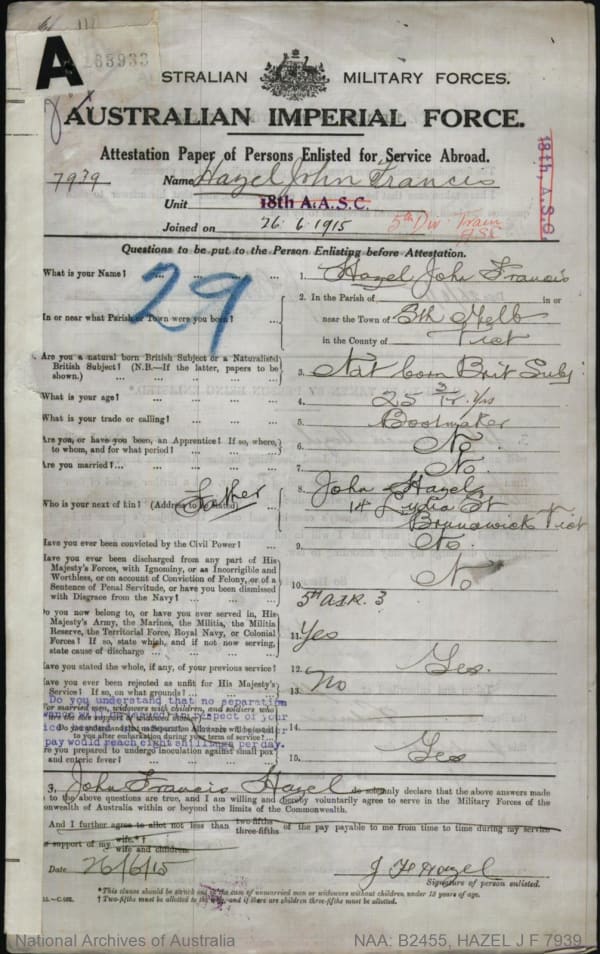 A
163933
STRALIAN MILITARY FORCES.
AUSTRALIAN IMPERIAL FORCE.
Attestation Paper of Persons Enlisted for Service Abroad.
7939 Name Hazel John Francis
Unit 18th A.A.S.C.
18th A.S.C.
Joined on 26.6.1915 5th Div Train
Questions to be put to the Person Enlisting before Attestation.
29
What is your Name? ... ... ... 1. Hazel John Francis
In or near what Parish or Town were you born? ... 2. In the Parish of in or
near the Town of Sth Melb
in the County of Vict
Are you a natural born British Subject or a Naturalised British Subject? (N.B.—If the latter, papers to be shown.) ... ... 3. Nat born Brit Subj
What is your age? ... ... ... 4. 25 3/12 yrs
What is your trade or calling? ... ... 5. Bootmaker
Are you, or have you been, an Apprentice? If so, where, to whom, and for what period? ... 6. No
Are you married?... ... ... 7. No.
Who is your next of kin? (Address to be stated) Father 8. John Hazel
14 Lydia St
Brunswick Vict
Have you ever been convicted by the Civil Power? ... 9. No.
Have you ever been discharged from any part of His
Majesty's Forces, with Ignominy, or as Incorrigible and
Worthless, or on account of Conviction of Felony, or of a
Sentence of Penal Servitude, or have you been dismissed
with Disgrace from the Navy? ... ... 10. No
5th A.I.R. 3
Do you now belong to, or have you ever served in, His
Majesty's Army, the Marines, the Militia, the Militia
Reserve, the Territorial Force, Royal Navy, or Colonial
Forces? If so, state which, and if not now serving,
state cause of discharge ... ... 11. Yes
Have you stated the whole, if any, of your previous service? 12. Yes.
Have you ever been rejected as unfit for His Majesty's
Service? If so, on what grounds? ... 13. No
Do you understand that no separation
(For married men, widowers with children, and soldiers who
are the sole support of widowed mother)
respect of your
Do you understand that no Separation Allowance will be issued
to you after embarkation during your term of service? ... 14.
pay would reach eight shillings per day.
Are you prepared to undergo inoculation against small pox
and enteric fever? ... ... 15. Yes
3, John Francis Hazel do solemnly declare that the above answers made
to the above questions are true, and I am willing and hereby voluntarily agree to serve in the Military Forces of the
Commonwealth of Australia within or beyond the limits of the Commonwealth.
And I further agree to allot not less than two-fifths three-fifths of the pay payable to me from time to time during my service
support of my wife.* † wife and children.
Date 26/6/15 J F Hazel
Signature of person enlisted.
*This clause should be struck out in the case of unmarried men or widowers without children under 18 years of age.
† Two-fifths must be allotted to the wife, and if there are children three-fifths must be allotted.
National Archives of Australia NAA: B2455, HAZEL J F 7939